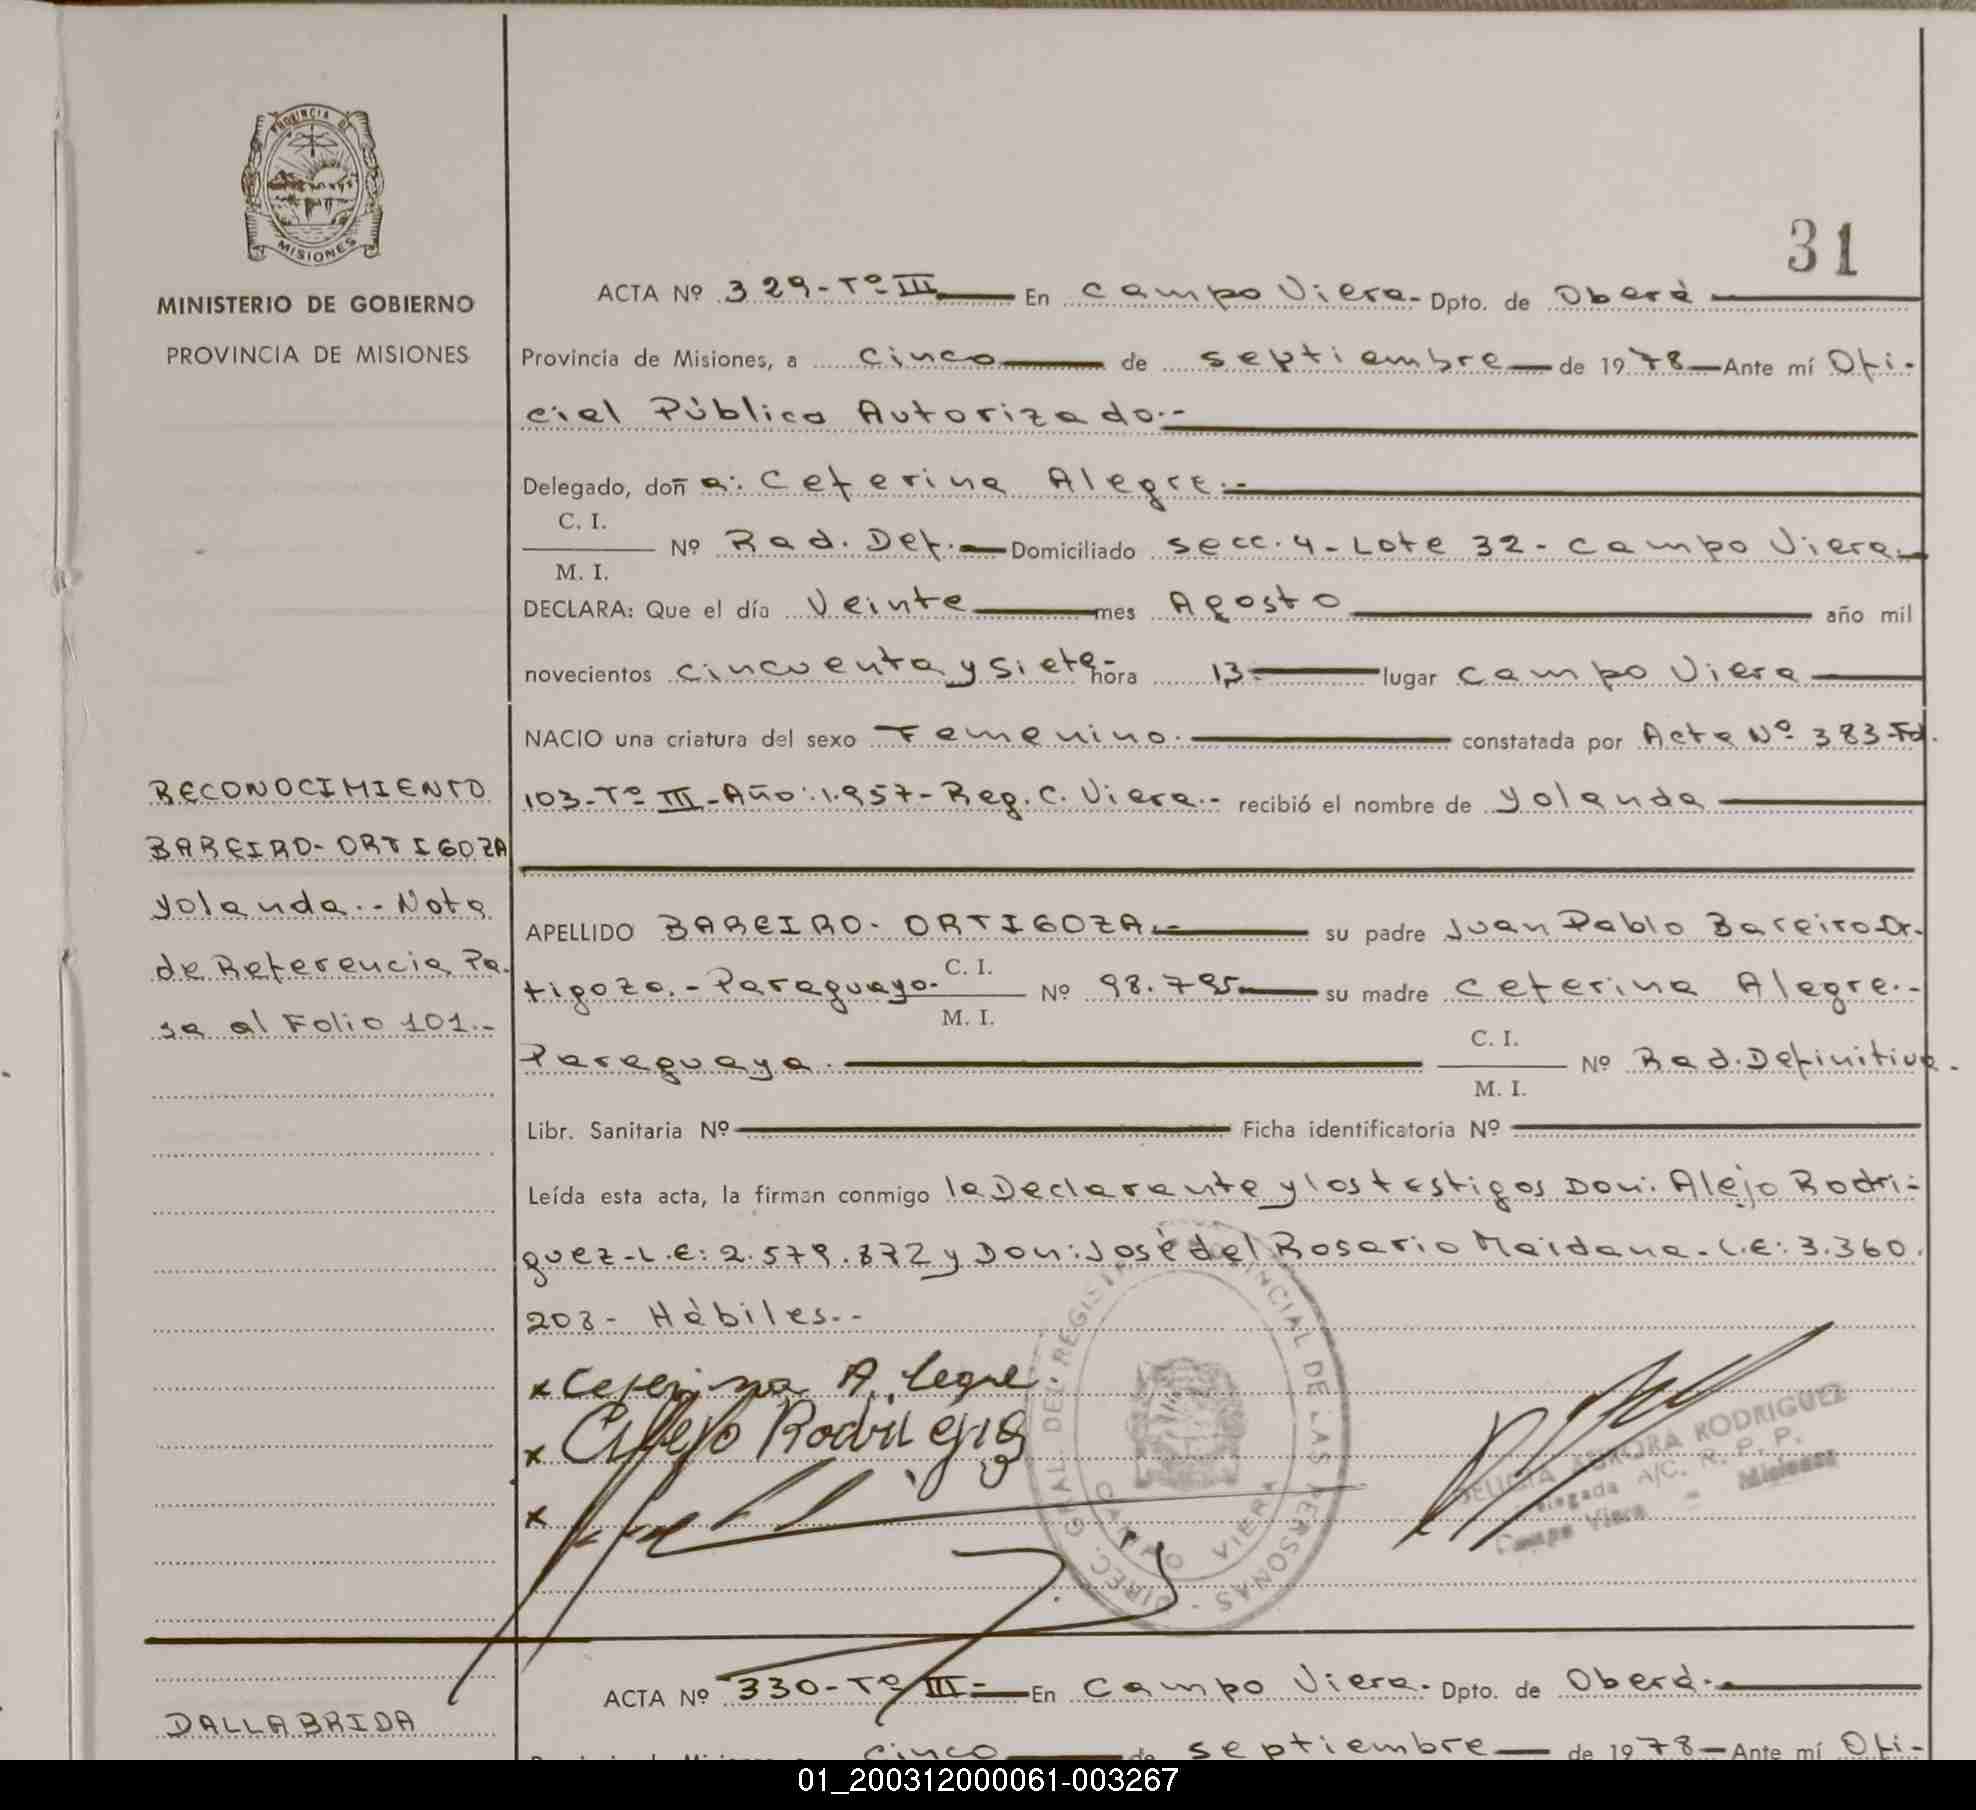 PROVINCIA DE
MISIONES
MINISTERIO DE GOBIERNO
PROVINCIA DE MISIONES
31
ACTA Nº 329-Tº III En Campo Viera- Dpto. de Oberá
Provincia de Misiones, a cinco de septiembre de 1978 Ante mí Ofi-
cial Público Autorizado.-
Delegado, doña: Ceferina Alegre.-
C. I.
Nº Rad. Def.- Domiciliado secc. 4- Lote 32- campo Viera
M. I.
DECLARA: Que el día Veinte mes Agosto año mil
novecientos cincuenta y siete- hora 13 lugar Campo Viera
NACIO una criatura del sexo Femenino. constatada por Acta Nº 383-Fº.
103-Tº III-Año:1.957-Reg. C. Viera.- recibió el nombre de Yolanda
RECONOCIMIENTO
BAREIRO-ORTIGOZA
Yolanda.-Nota
de Referencia Pa-
sa al Folio 101.-
APELLIDO BAREIRO-ORTIGOZA.- su padre Juan Pablo Bareiro-Or-
C. I.
tigoza.-Paraguayo. Nº 98.795 su madre Ceferina Alegre.-
M. I.
C. I.
Paraguaya. Nº Rad. Definitiva.
M. I.
Libr. Sanitaria Nº Ficha identificatoria Nº
Leída esta acta, la firman conmigo la Declarante y los testigos Don: Alejo Rodri-
guez-L.E: 2.579.872 y Don: José del Rosario Maidana- L.E: 3.360.
203- Hábiles.-
x Ceferina Alegre.
x Alejo Rodriguez
x
DIREC. GRAL. DEL REGISTRO PROVINCIAL DE LAS PERSONAS
CAMPO VIERA
AURORA RODRIGUEZ
Delegada A/C. R. P. P.
Campo Viera - Misiones
ACTA Nº 330-Tº III- En Campo Viera. Dpto. de Oberá.
DALLABRIDA
cinco de septiembre de 1978 Ante mí Ofi-
01_200312000061-003267